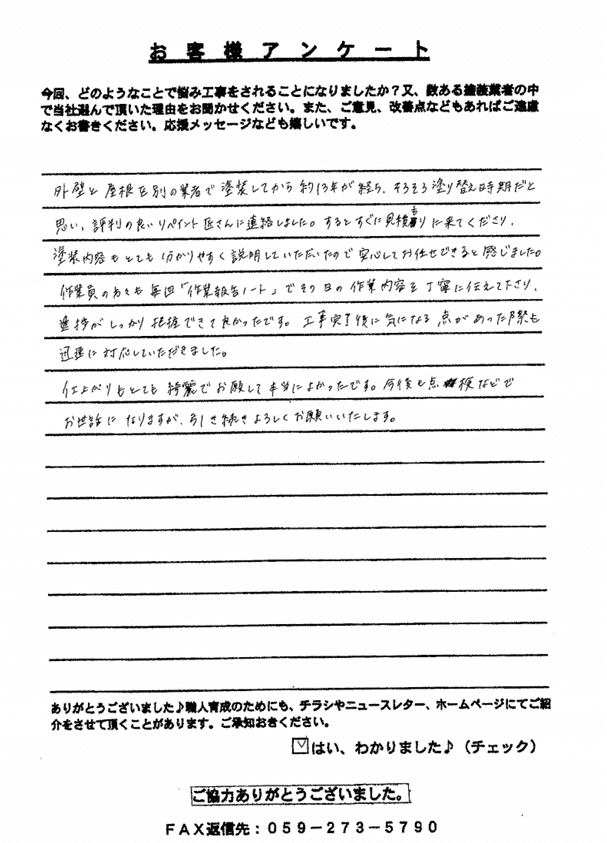 お客様アンケート
今回、どのようなことで悩み工事をされることになりましたか？又、数ある塗装業者の中
で当社選んで頂いた理由をお聞かせください。また、ご意見、改善点などもあればご遠慮
なくお書きください。応援メッセージなども嬉しいです。
外壁と屋根を別の業者で塗装してから約13年が経ち、そろそろ塗り替え時期だと
思い、評判の良いリペイント匠さんに連絡しました。するとすぐに見積もりに来てくださり、
塗装内容もとても分かりやすく説明していただいたので安心してお任せできると感じました。
作業員の方々も毎回「作業報告ノート」でその日の作業内容を丁寧に伝えて下さり、
進捗がしっかり把握できて良かったです。工事完了後に気になる点があった際も
迅速に対応していただきました。
仕上がりもとても綺麗でお願して本当によかったです。今後も点検などで
お世話になりますが、引き続きよろしくお願いいたします。
ありがとうございました♪職人育成のためにも、チラシやニュースレター、ホームページにてご紹
介をさせて頂くことがあります。ご承知おきください。
はい、わかりました♪（チェック）
ご協力ありがとうございました。
FAX返信先：059－273－5790